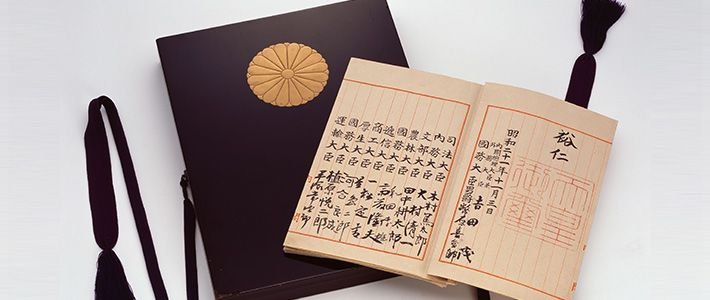 裕仁
天皇御璽
昭和二十一年十一月三日
内閣總理大臣
外務大臣 吉田茂
國務大臣 男爵 幣原喜重郎
司法大臣 木村篤太郎
内務大臣 大村清一
文部大臣 田中耕太郎
農林大臣 和田博雄
國務大臣 斎藤隆夫
遞信大臣 一松定吉
商工大臣 星島二郎
厚生大臣 河合良成
國務大臣 植原悦二郎
運輸大臣 平塚常次郎